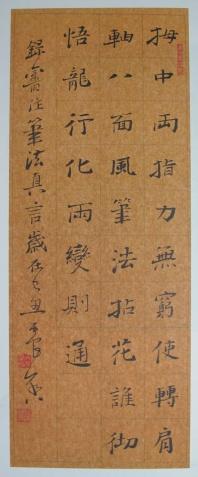 拇中両指力無窮使轉肩
軸八面風筆法拈花誰彻
悟龍行化雨變則通
錄舊作筆法真言歲在丑